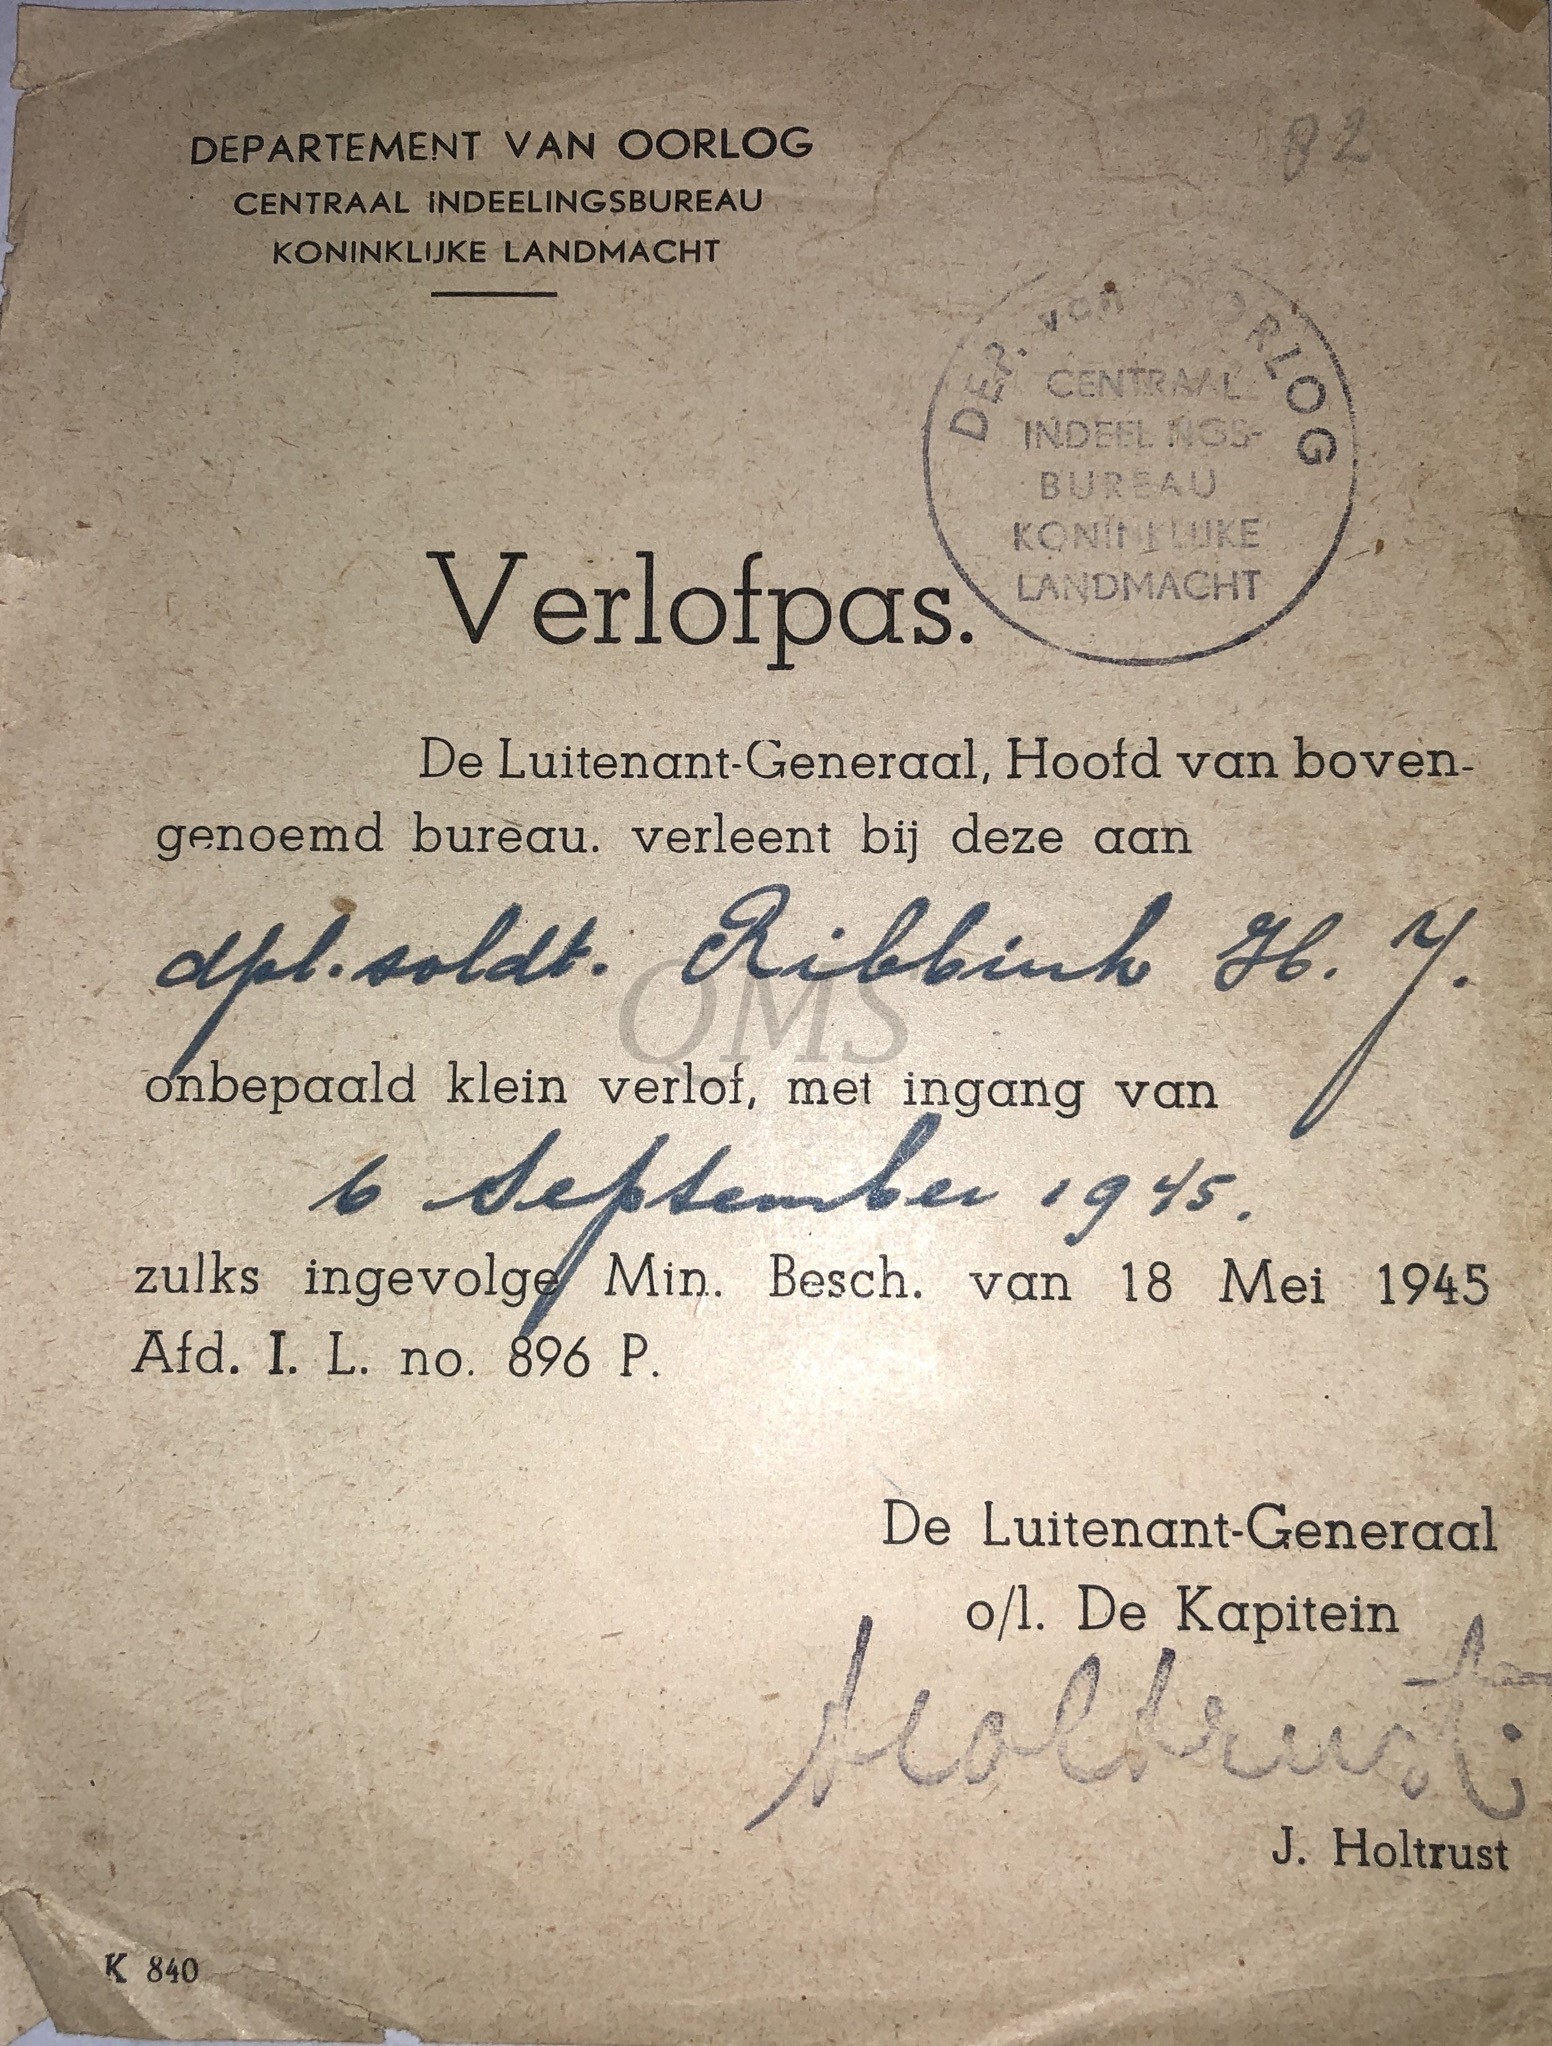 82
DEPARTEMENT VAN OORLOG
CENTRAAL INDEELINGSBUREAU
KONINKLIJKE LANDMACHT
DEP. van OORLOG
CENTRAAL
INDEELINGS-
BUREAU
KONINKLIJKE
LANDMACHT
Verlofpas.
De Luitenant-Generaal, Hoofd van boven-
genoemd bureau. verleent bij deze aan
dpl. soldt. Ribbink H. J.
OMS
onbepaald klein verlof, met ingang van
6 September 1945.
zulks ingevolge Min. Besch. van 18 Mei 1945
Afd. I. L. no. 896 P.
De Luitenant-Generaal
o/l. De Kapitein
Holtrust
J. Holtrust
K 840